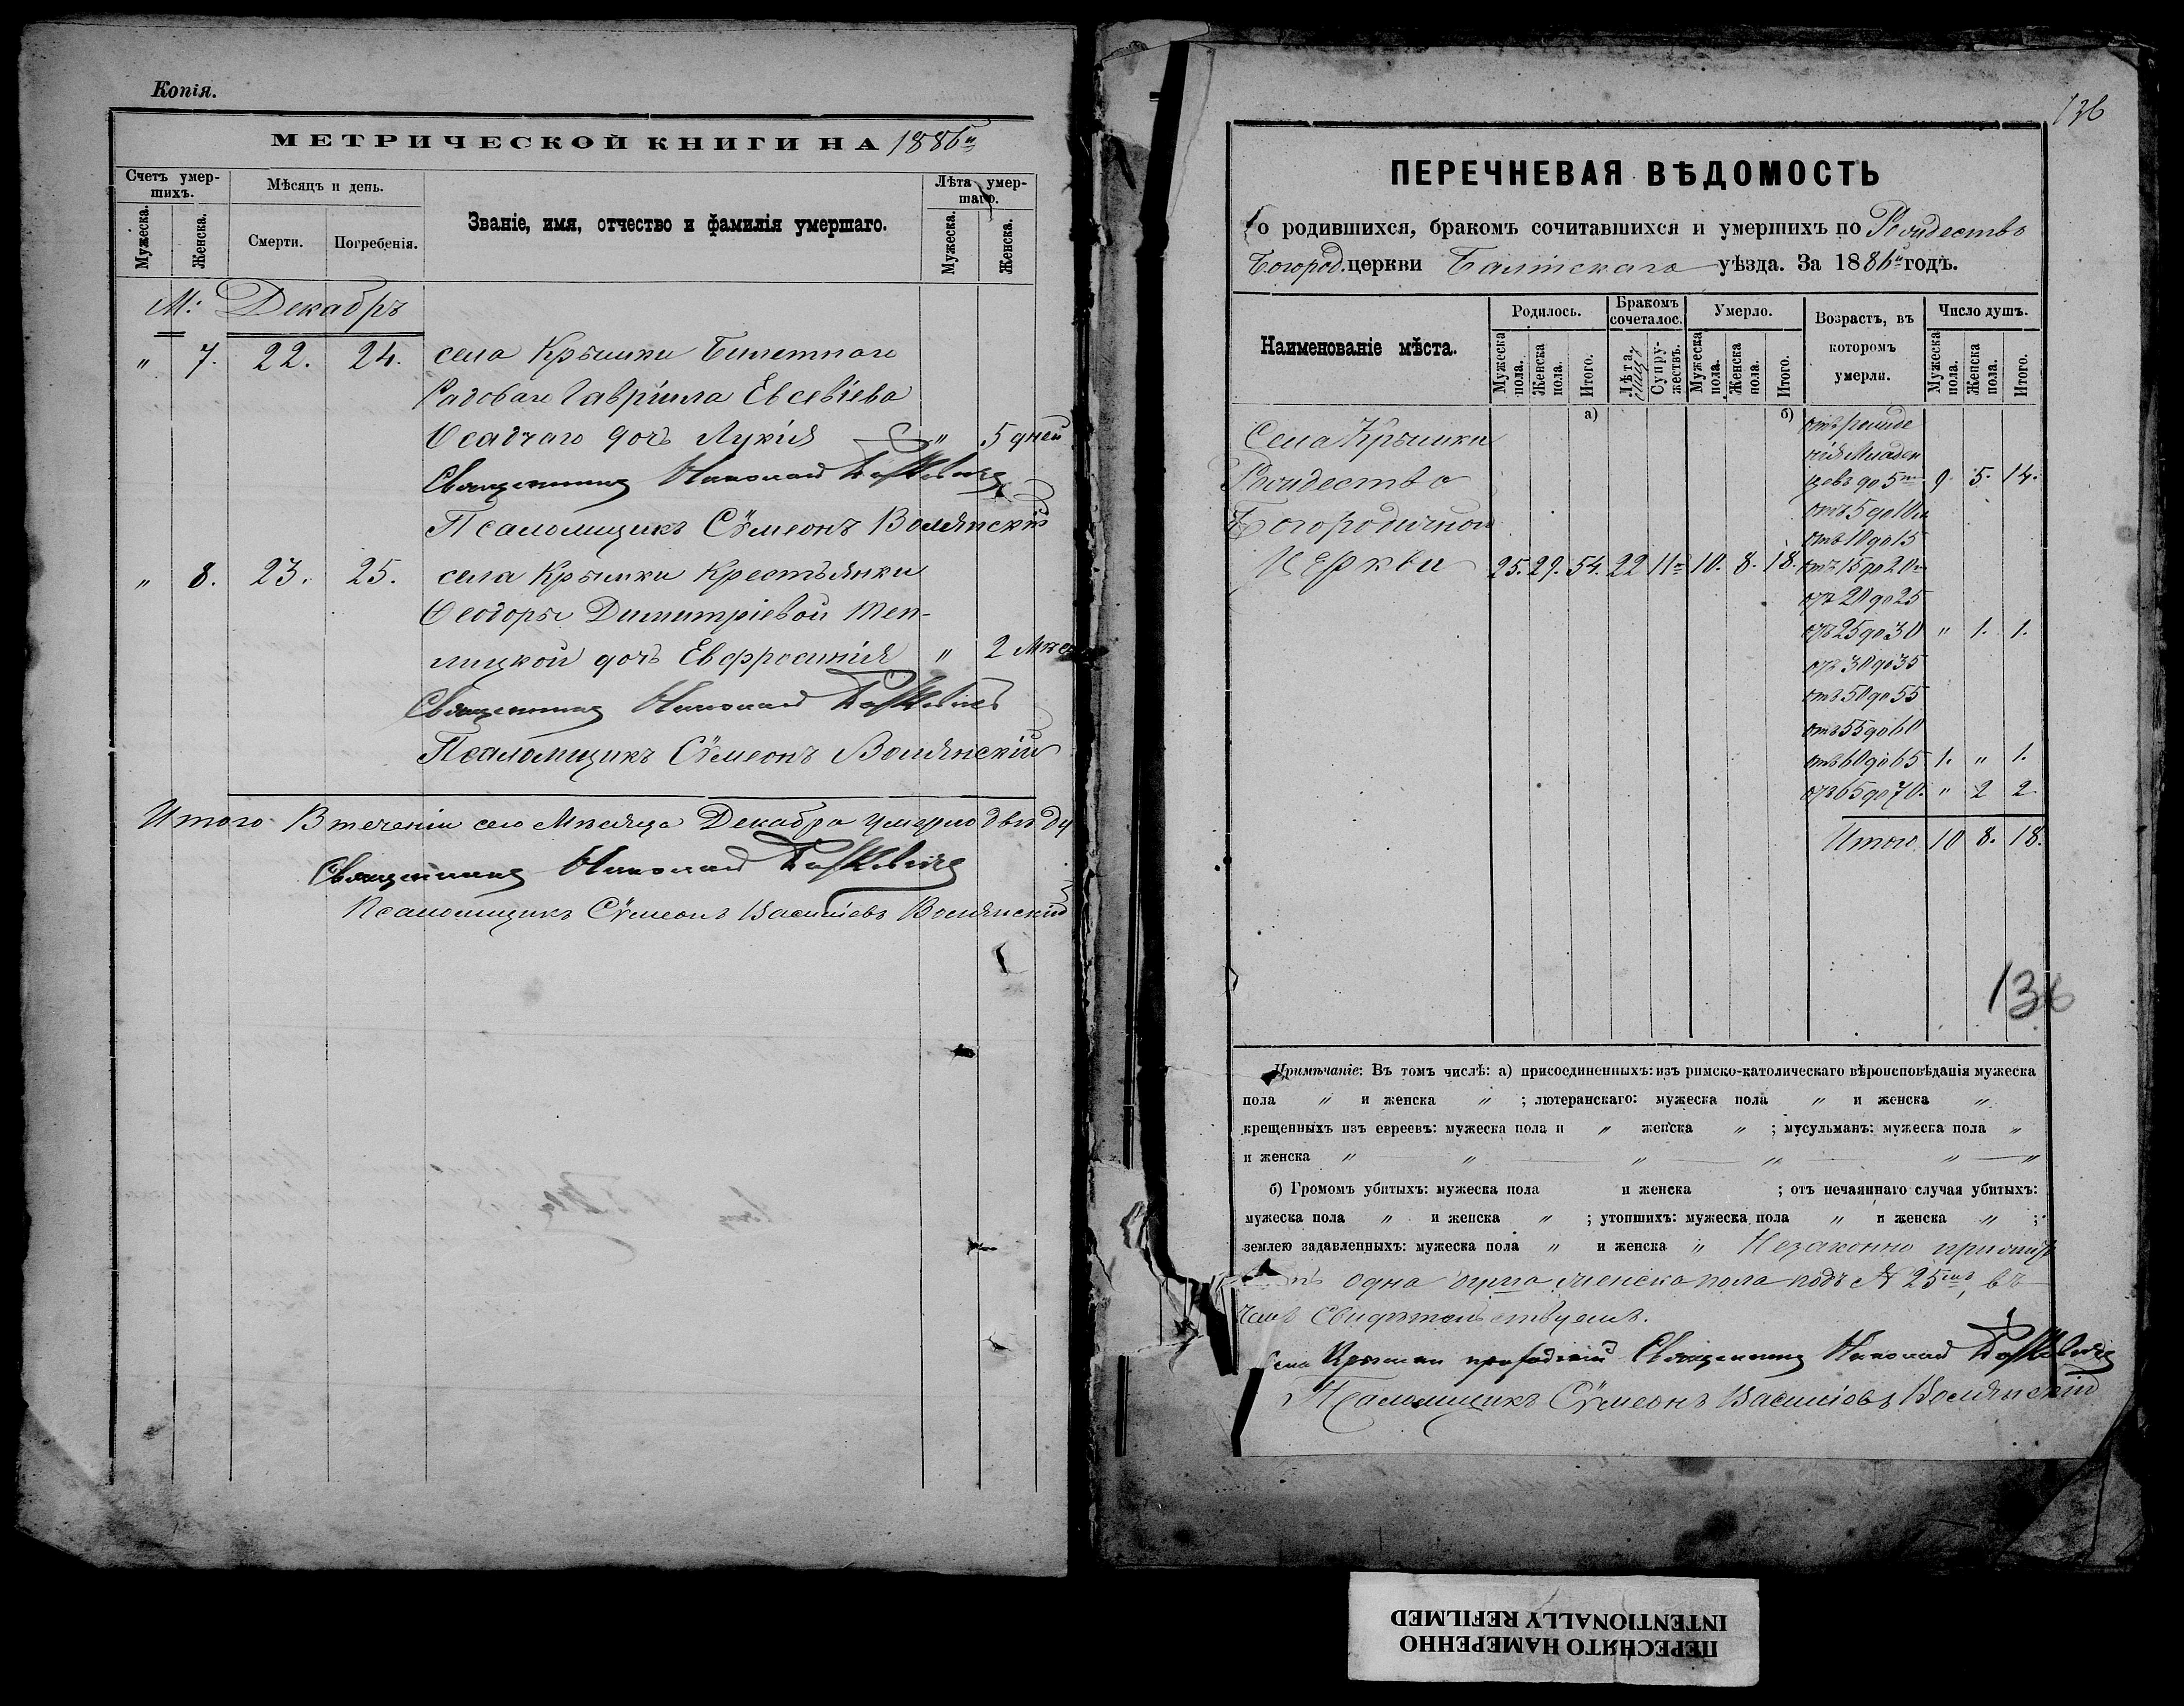 Копія.
МЕТРИЧЕСКОЙ КНИГИ НА 1886й
Счетъ умер-
шихъ.
Мѣсяцъ и день.
Званіе, имя, отчество и фамилія умершаго.
Лѣта умер-
шаго.
Мужеска.
Женска.
Смерти.
Погребенія.
Мужеска.
Женска.
М: Декабръ
" 7. 22. 24. села Крымки Билетнаго
Рядоваго Гавріила Евсевіева
Осадчаго дочь Лукія " 5 дней
Священникъ Николай
Псаломщикъ Сѵмеонъ Волянскій
" 8. 23. 25. села Крымки Крестьянки
Ѳеодоры Димитріевой Теп-
лицкой дочь Евфросинія " 2 Мѣс
Священникъ Николай
Псаломщикъ Сѵмеонъ Волянскій
Итого В теченіи сего Мѣсяца Декабра умерло двѣ ду
Священникъ Николай
Псаломщикъ Сѵмеонъ Василіевъ Волянскій
136
ПЕРЕЧНЕВАЯ ВѢДОМОСТЬ
о родившихся, бракомъ сочитавшихся и умершихъ по Рождество
Богород. церкви Балтскаго уѣзда. За 1886й годъ.
Наименованіе мѣста.
Родилось.
Бракомъ
сочеталос.
Умерло.
Возрастъ, въ
которомъ
умерли.
Число душъ.
Мужеска
пола.
Женска
пола.
Итого.
Лѣта
лицъ
Супру-
жествъ.
Мужеска
пола.
Женска
пола.
Итого.
Мужеска
пола.
Женска
пола.
Итого.
а)
б)
Села Крымки
Рождество
Богородичной
Церкви 25. 29. 54. 22 11ть 10. 8. 18.
отъ рожде
нія Младен
цевъ до 5ти 9. 5. 14.
отъ 5 до 10ти
отъ 10 до 15
отъ 15 до 20ти
отъ 20 до 25
отъ 25 до 30 " 1. 1.
отъ 30 до 35
отъ 50 до 55
отъ 55 до 60
отъ 60 до 65 1. " 1.
отъ 65 до 70. " 2 2.
Итого 10 8. 18.
136
Примѣчаніе: Въ томъ числѣ: а) присоединенныхъ: изъ римско-католическаго вѣроисповѣданія мужеска
пола " и женска " ; лютеранскаго: мужеска пола " и женска "
крещенныхъ изъ евреевъ: мужеска пола и " женска " ; мусульманъ: мужеска пола "
и женска " " " " " "
б) Громомъ убитыхъ: мужеска пола и женска ; отъ нечаяннаго случая убитыхъ:
мужеска пола " и женска " ; утопшихъ: мужеска пола " и женска " ;
землею задавленныхъ: мужеска пола " и женска " Незаконно
одна душа женска пола подъ № 25мъ, въ
чемъ Свидѣтельствуемъ.
Села Крымки приходскій Священникъ Николай
Псаломщикъ Сѵмеонъ Василіевъ Волянскій
ПЕРЕСНЯТО НАМЕРЕННО
INTENTIONALLY REFILMED